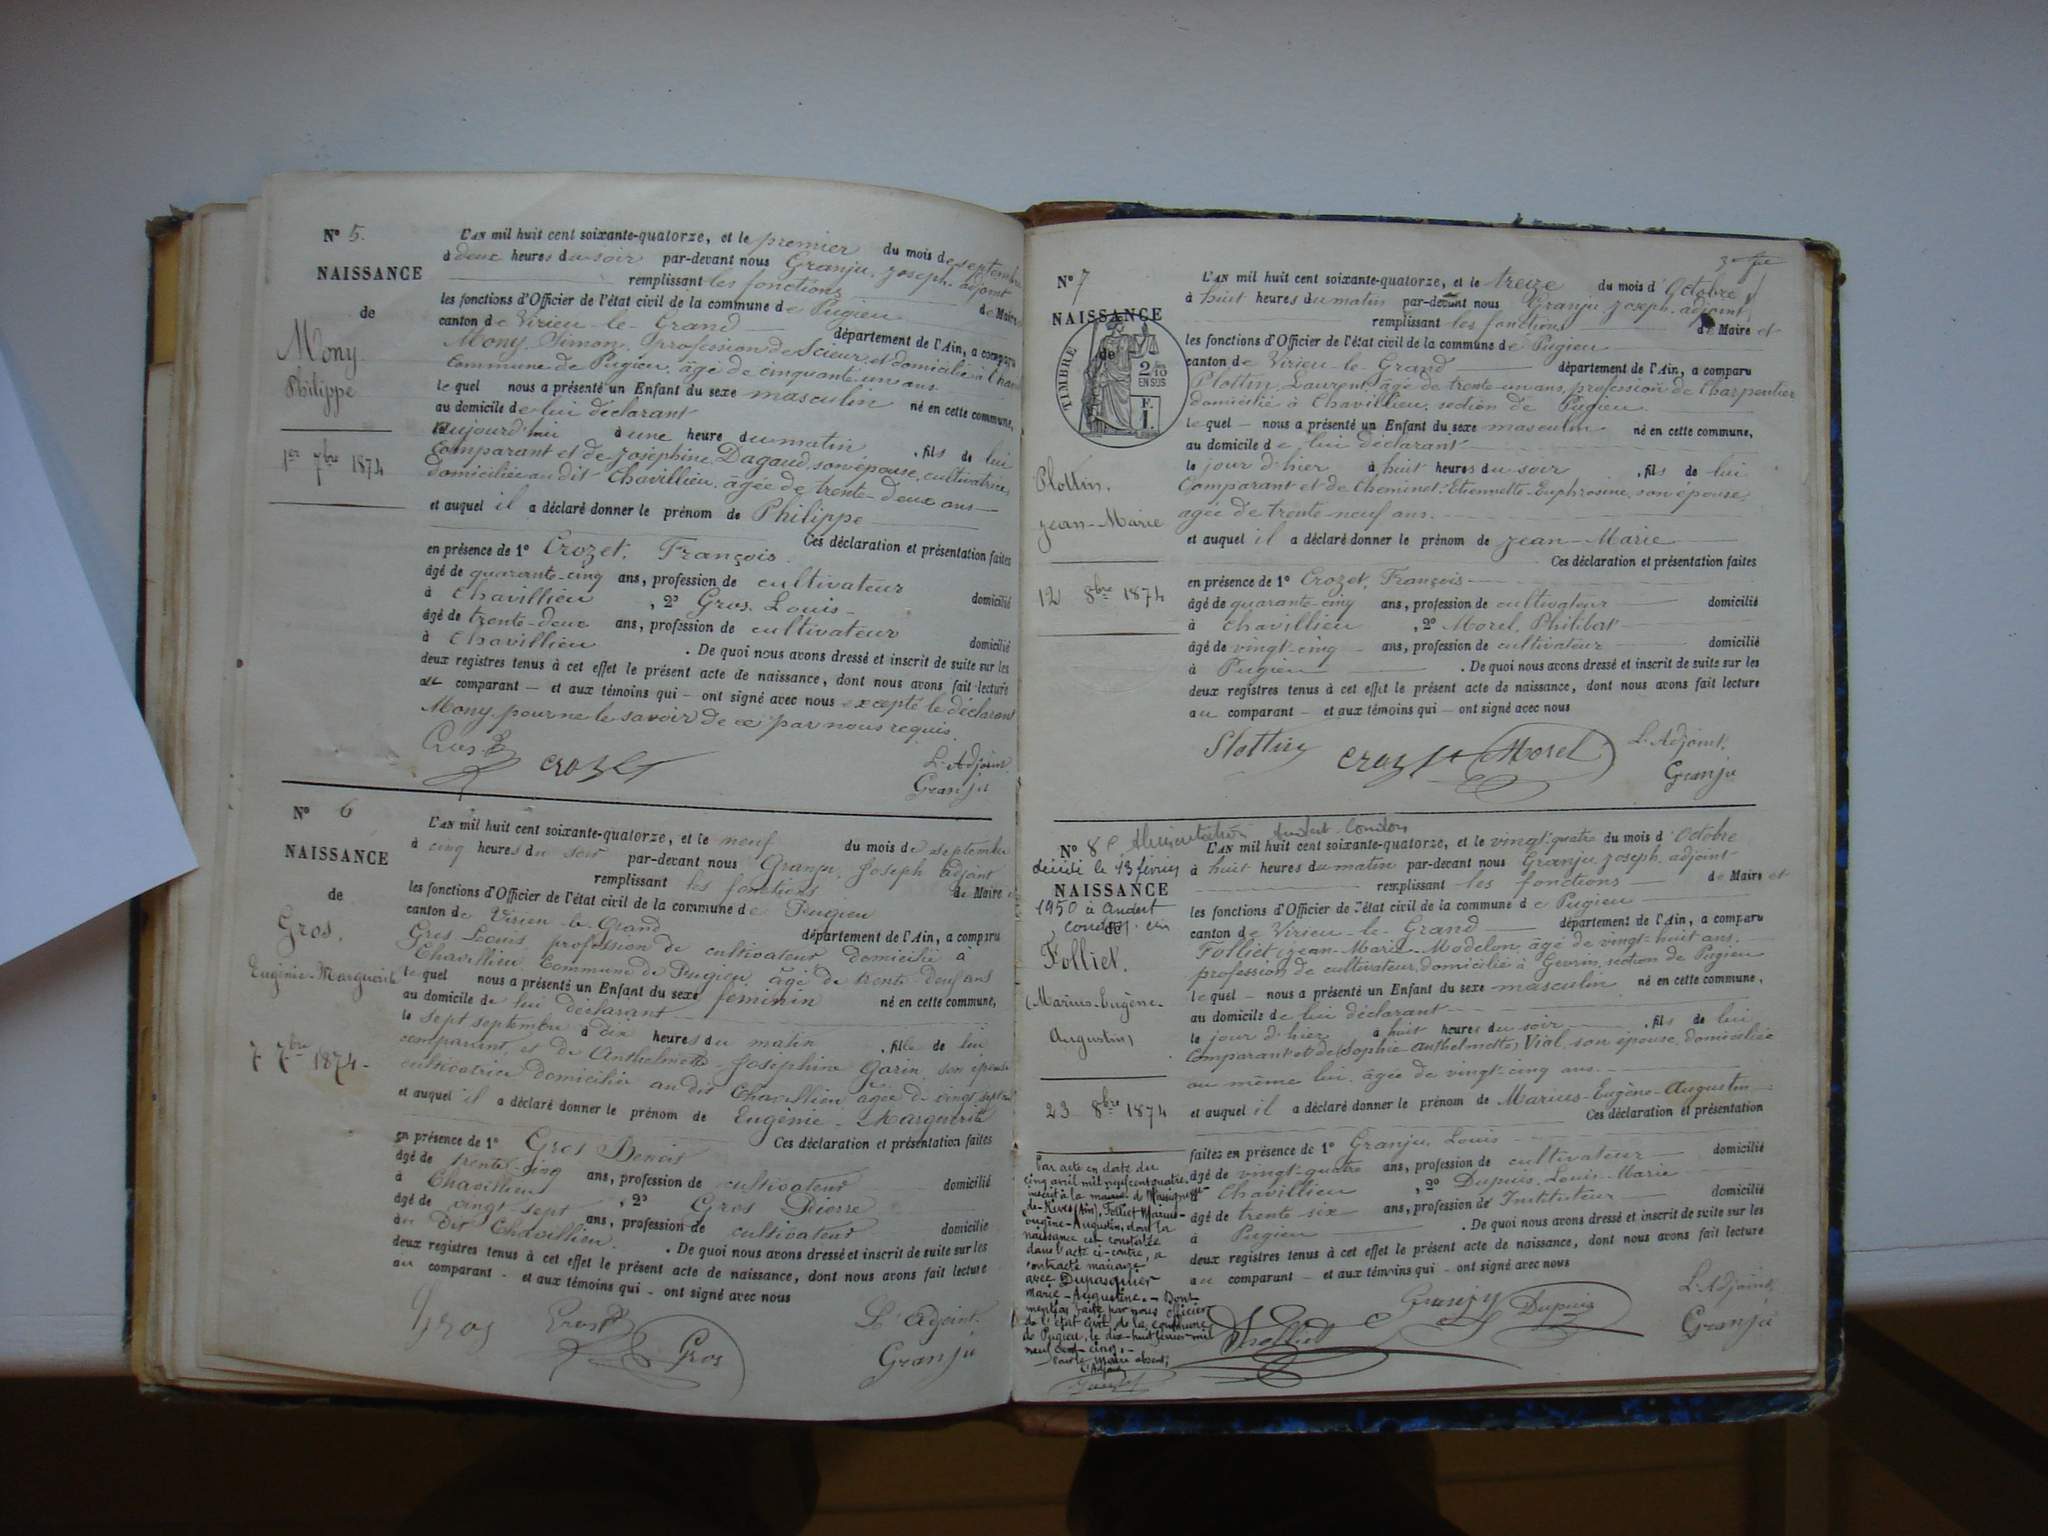 N° 5.
NAISSANCE
de
Mony
Philippe
1er 7bre 1874
L'AN mil huit cent soixante-quatorze, et le premier du mois de septembre
à deux heures du soir par-devant nous Granju, Joseph, adjoint
remplissant les fonctions de Maire
les fonctions d'Officier de l'état civil de la commune de Pugieu
canton de Virieu-le-Grand département de l'Ain, a comparu
Mony, Simon, profession de Scieur, et domicilié à
Commune de Pugieu, âgé de cinquante un ans
lequel nous a présenté un Enfant du sexe masculin né en cette commune,
au domicile de lui déclarant
aujourd'hui à une heure du matin, fils de lui
Comparant et de Joséphine Dagaud, son épouse, cultivatrice,
domiciliée au dit Chavillieu, âgée de trente-deux ans
et auquel il a déclaré donner le prénom de Philippe
Ces déclaration et présentation faites
en présence de 1° Crozet, François
âgé de quarante-cinq ans, profession de cultivateur domicilié
à Chavillieu, 2° Gros, Louis
âgé de trente-deux ans, profession de cultivateur domicilié
à Chavillieu. De quoi nous avons dressé et inscrit de suite sur les
deux registres tenus à cet effet le présent acte de naissance, dont nous avons fait lecture
au comparant — et aux témoins qui — ont signé avec nous excepté le déclarant
Mony, pour ne le savoir de ce par nous requis.
Crozet
L'Adjoint
Granju
N° 6
NAISSANCE
de
Gros,
Eugénie-Marguerite
7 7bre 1874-
L'AN mil huit cent soixante-quatorze, et le neuf du mois de septembre
à cinq heures du soir par-devant nous Granju, Joseph adjoint
remplissant les fonctions de Maire
les fonctions d'Officier de l'état civil de la commune de Pugieu
canton de Virieu-le-Grand département de l'Ain, a comparu
Gros Louis, profession de cultivateur domicilié à
Chavillieu, Commune de Pugieu, âgé de trente deux ans
lequel nous a présenté un Enfant du sexe féminin né en cette commune,
au domicile de lui déclarant
le sept septembre à dix heures du matin, fille de lui
comparant, et de Anthelmette-Joséphine Garin, son épouse
cultivatrice domiciliée au dit Chavillieu âgée de vingt sept ans
et auquel il a déclaré donner le prénom de Eugénie-Marguerite
Ces déclaration et présentation faites
en présence de 1° Gros Benoit
âgé de trente-cinq ans, profession de cultivateur domicilié
à Chavillieu, 2° Gros Pierre
âgé de vingt sept ans, profession de cultivateur domicilié
au Dit Chavillieu. De quoi nous avons dressé et inscrit de suite sur les
deux registres tenus à cet effet le présent acte de naissance, dont nous avons fait lecture
au comparant - et aux témoins qui - ont signé avec nous
Gros Gros
L'adjoint.
Granju
N° 7
NAISSANCE
de
TIMBRE
2/10 EN SUS
F. 1.
Plottin.
Jean-Marie
12 8bre 1874
L'AN mil huit cent soixante-quatorze, et le treize du mois d'Octobre
à huit heures du matin par-devant nous Granju, Joseph, adjoint
remplissant les fonctions de Maire et
les fonctions d'Officier de l'état civil de la commune de Pugieu
canton de Virieu-le-Grand département de l'Ain, a comparu
Plottin, Laurent, âgé de trente-un ans, profession de Charpentier
domicilié à Chavillieu, section de Pugieu.
lequel — nous a présenté un Enfant du sexe masculin né en cette commune,
au domicile de lui déclarant
le jour d'hier à huit heures du soir, fils de lui
Comparant et de Cheminet Etiennette-Euphrosine, son épouse,
agée de trente-neuf ans.
et auquel il a déclaré donner le prénom de Jean-Marie
Ces déclaration et présentation faites
en présence de 1° Crozet, François
âgé de quarante-cinq ans, profession de cultivateur domicilié
à Chavillieu, 2° Morel, Philibert
âgé de vingt-cinq ans, profession de cultivateur domicilié
à Pugieu. De quoi nous avons dressé et inscrit de suite sur les
deux registres tenus à cet effet le présent acte de naissance, dont nous avons fait lecture
au comparant — et aux témoins qui — ont signé avec nous
Plottin Crozet Morel
L'Adjoint.
Granju
N° 8
décédé le 13 février
NAISSANCE
1950 à Andert
Condon. Ain
de
Folliet.
(Marius-Eugène-
Augustin)
23 8bre 1874
Par acte en date du
cinq avril mil neuf cent quatre,
inscrit à la mairie de Massignieu-
de-Rives (Ain), Folliet Marius-
Eugène-Augustin, dont la
naissance est constatée
dans l'acte ci-contre, a
contracté mariage
avec Dupasquier
Marie-Augustine.- Dont
mention faite par nous officier
de l'état civil de la commune
de Pugieu, le dix-huit février mil
neuf cent cinq.-
Pour le maire absent;
L'Adjoint
L'AN mil huit cent soixante-quatorze, et le vingt-quatre du mois d'Octobre
à huit heures du matin par-devant nous Granju, Joseph, adjoint
remplissant les fonctions de Maire et
les fonctions d'Officier de l'état civil de la commune de Pugieu
canton de Virieu-le-Grand département de l'Ain, a comparu
Folliet, Jean-Marie-Modelon, âgé de vingt-huit ans.
profession de cultivateur, domicilié à Gevrin, section de Pugieu
lequel — nous a présenté un Enfant du sexe masculin né en cette commune,
au domicile de lui déclarant
le jour d'hier à huit heures du soir, fils de lui
Comparant et de (Sophie-Anthelmette) Vial, son épouse, domiciliée
au même lui, âgée de vingt-cinq ans.
et auquel il a déclaré donner le prénom de Marius-Eugène-Augustin
Ces déclaration et présentation
faites en présence de 1° Granju, Louis
âgé de vingt-quatre ans, profession de cultivateur domicilié
à Chavillieu, 2° Dupuis, Louis-Marie
âgé de trente six ans, profession de Instituteur domicilié
à Pugieu. De quoi nous avons dressé et inscrit de suite sur les
deux registres tenus à cet effet le présent acte de naissance, dont nous avons fait lecture
au comparant — et aux témoins qui - ont signé avec nous
Folliet Granju Dupuis
L'Adjoint,
Granju